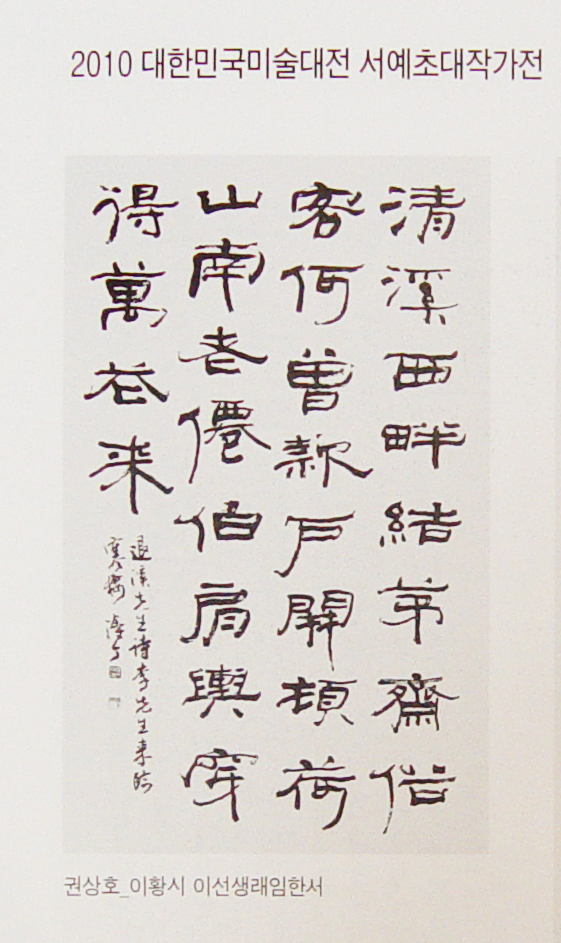 2010 대한민국미술대전 서예초대작가전
清溪西畔結茅齋俗
客何曾款戶開頓荷
山南老僊伯肩輿穿
得萬花来
退溪先生詩李先生来臨
권상호_이황시 이선생래임한서